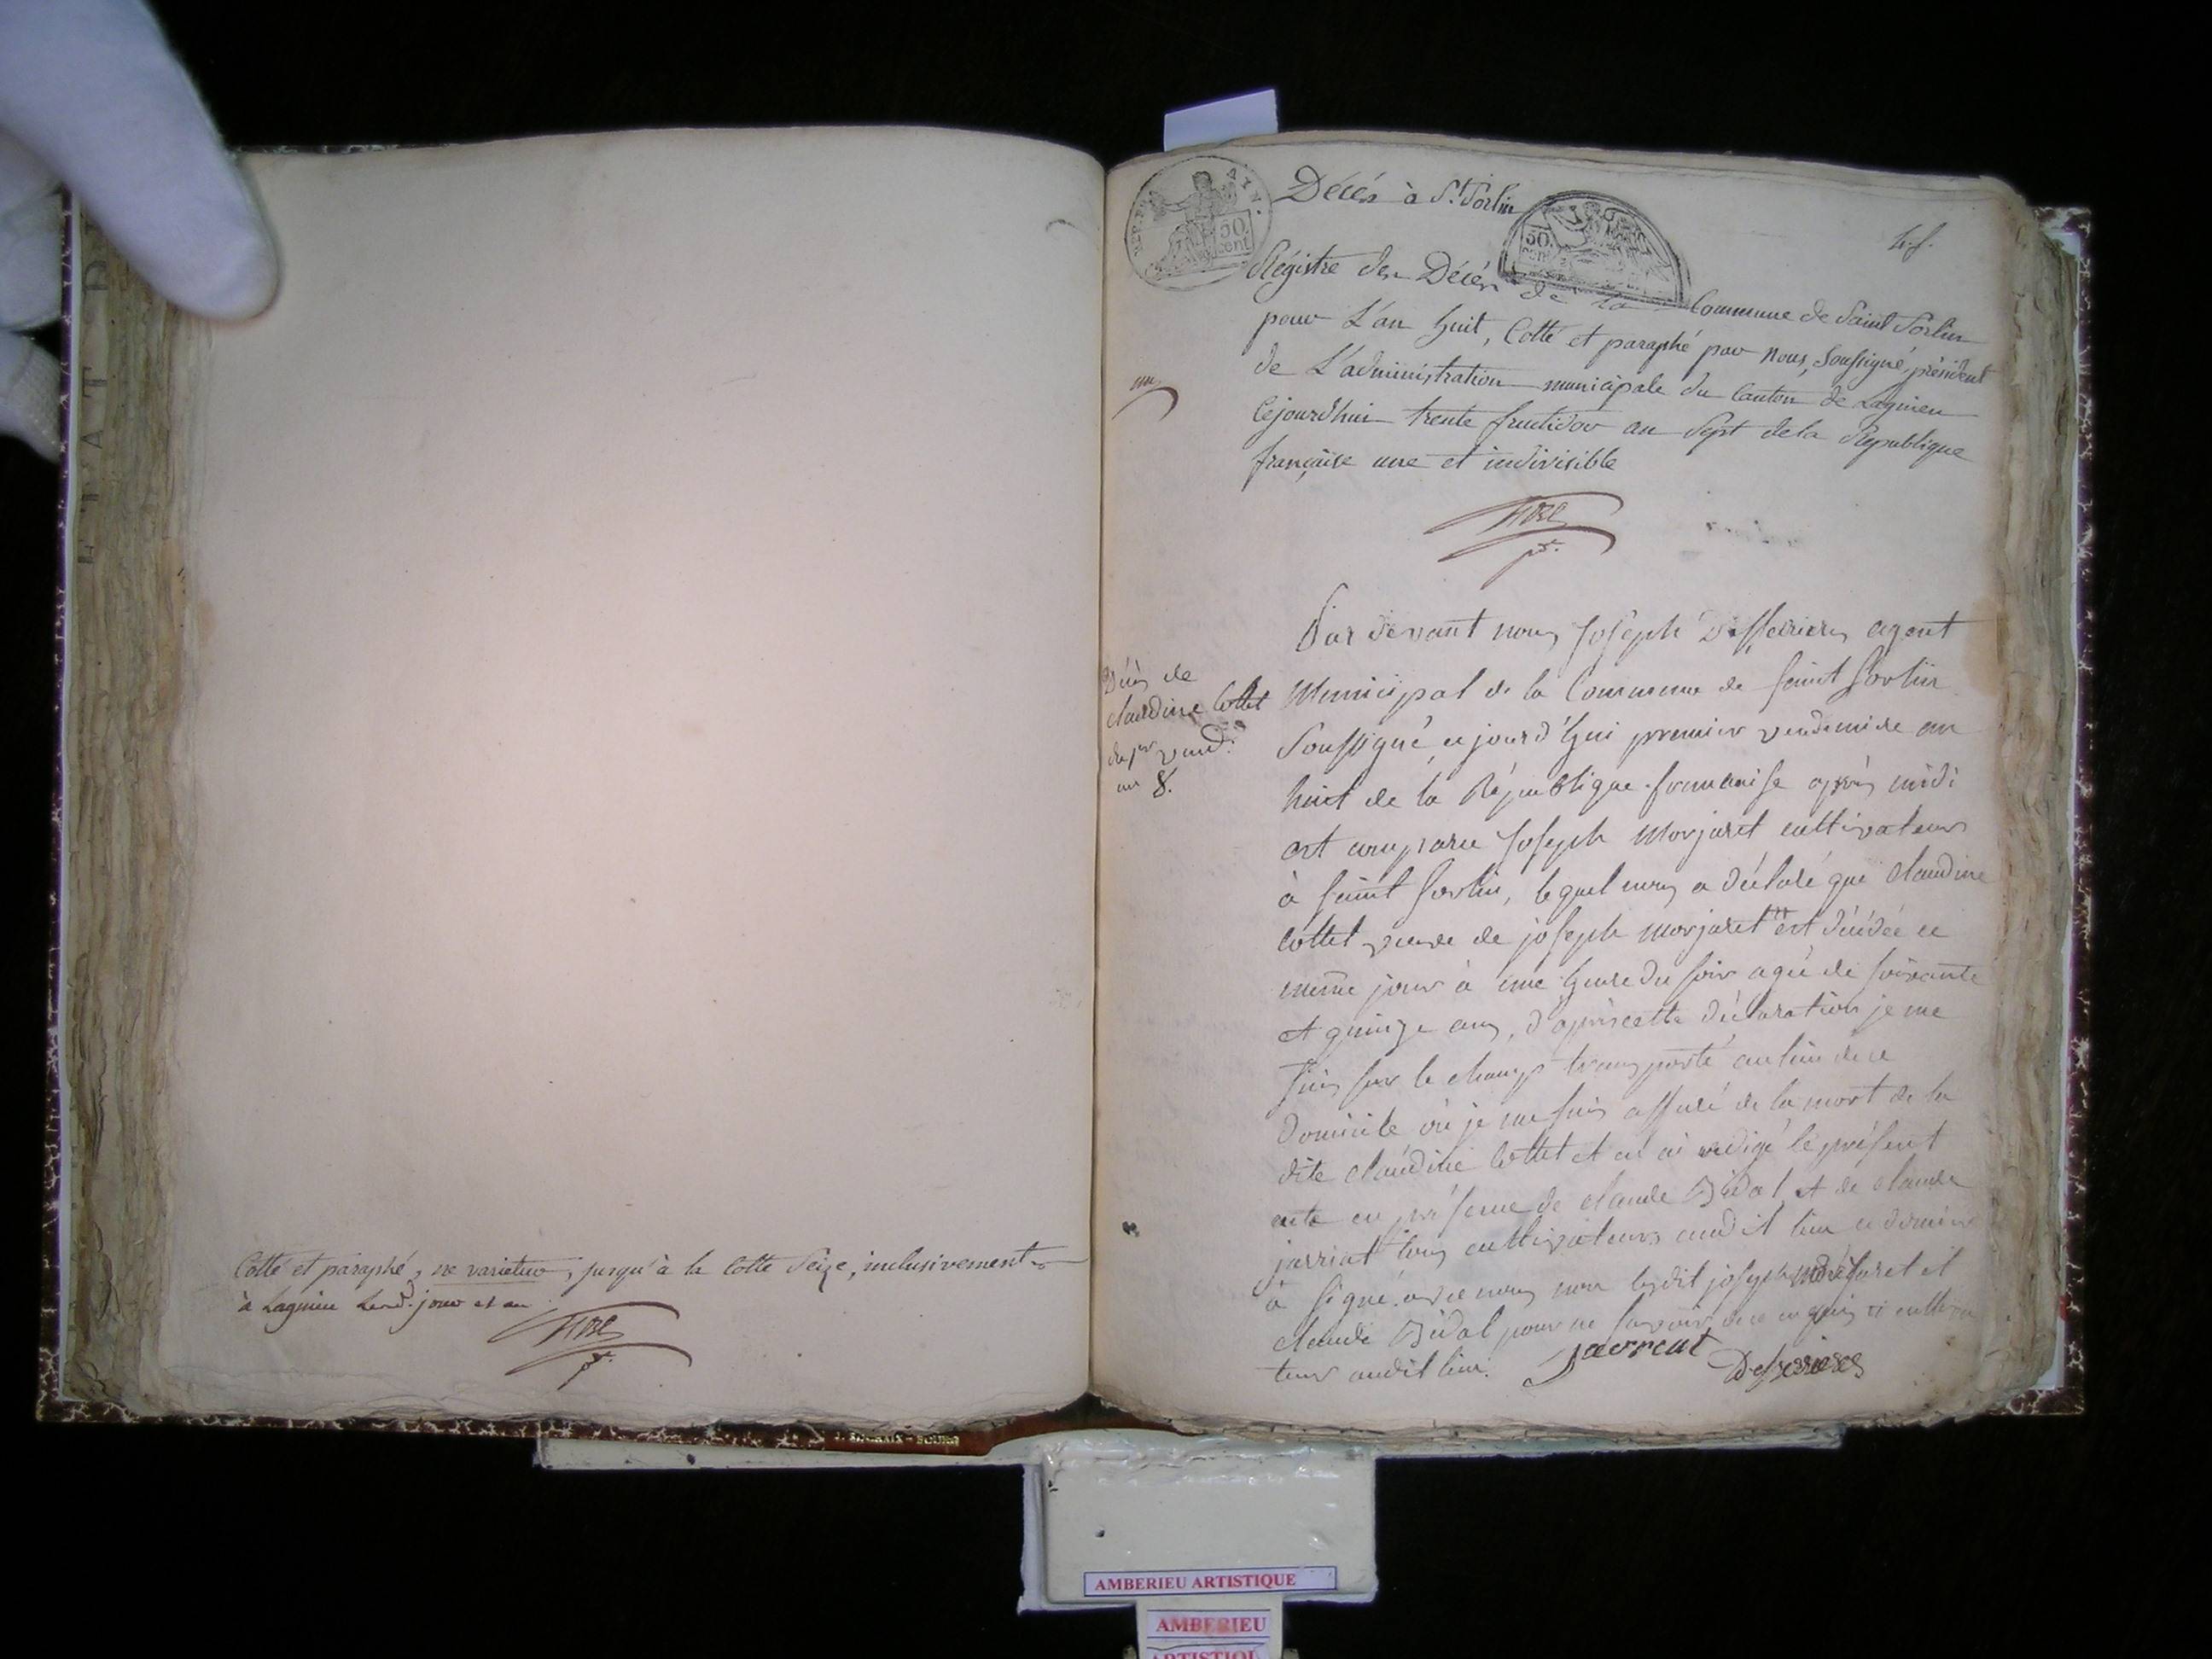 Cotté et paraphé, ne varietur, jusqu'à la Cotte Seize, inclusivement
à Lagnieu Led. jour et an
Décés à St. Sorlin
REP. FRA
AIN.
50
cent
50
cen
Régistre des Décés de la Commune de Saint Sorlin
pour L'an huit, Cotté et paraphé par nous, Soussigné, président
de L'administration municipale du Canton de Lagnieu
Cejourd'hui trente fructidor an Sept de la République
française une et indivisible
un
Décès de
claudine Cottet
du 1er vend:
an 8.
Par devant nous Joseph Desferrieres agent
Municipal de la Commune de saint sorlin
Soussigné, cejourd'hui premier vendemiere an
huit de la République francaise après midi
est comparu Joseph Morjaret cultivateur
à saint sorlin, lequel nous a déclaré que claudine
Cottet veuve de joseph Morjaret est décédée ce
même jour à une heure du soir agée de soixante
et quinze ans, d'après cette déclaration je me
suis sur le champ transporté au lieu de ce
Domicile où je me suis assuré de la mort de la
dite claudine Cottet et en ai redigé le présent
acte en présence de claude Bidal et de claude
jarriat tous cultivateurs audit lieu ce dernier
à signé avec nous non ledit joseph Morjaret et
claude Bidal pour ne savoir de ce enquis
teur audit lieu.
Desferrieres
J. BOURG
AMBERIEU ARTISTIQUE
AMBERIEU
ARTISTIQU